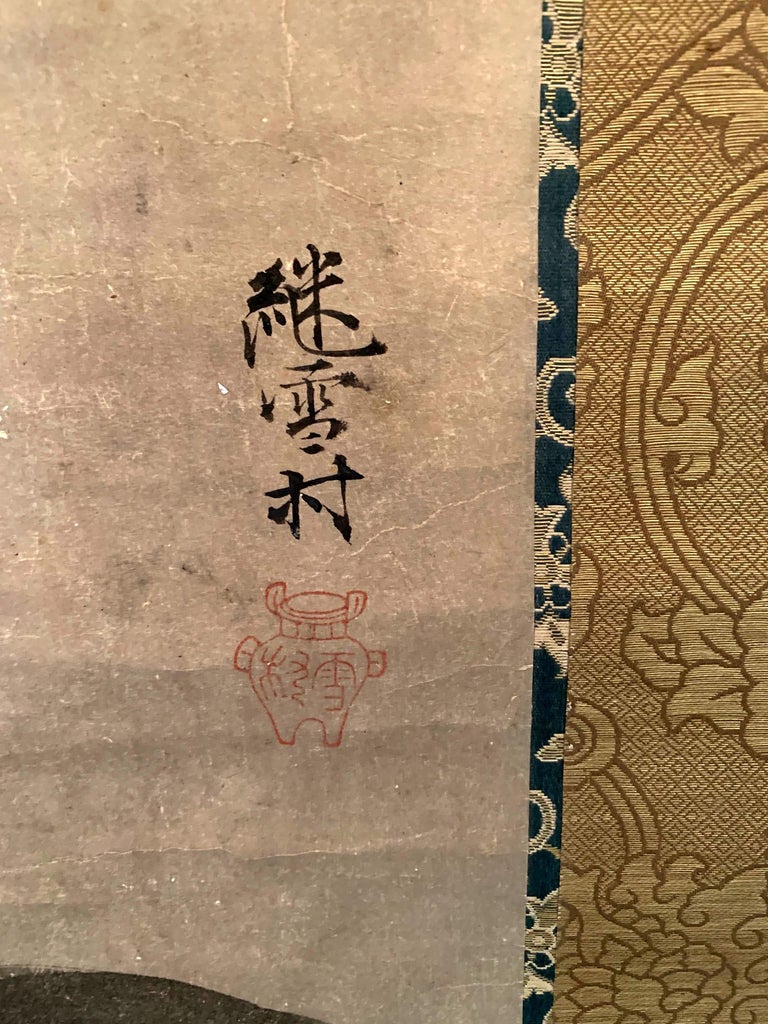 継雪村
雪